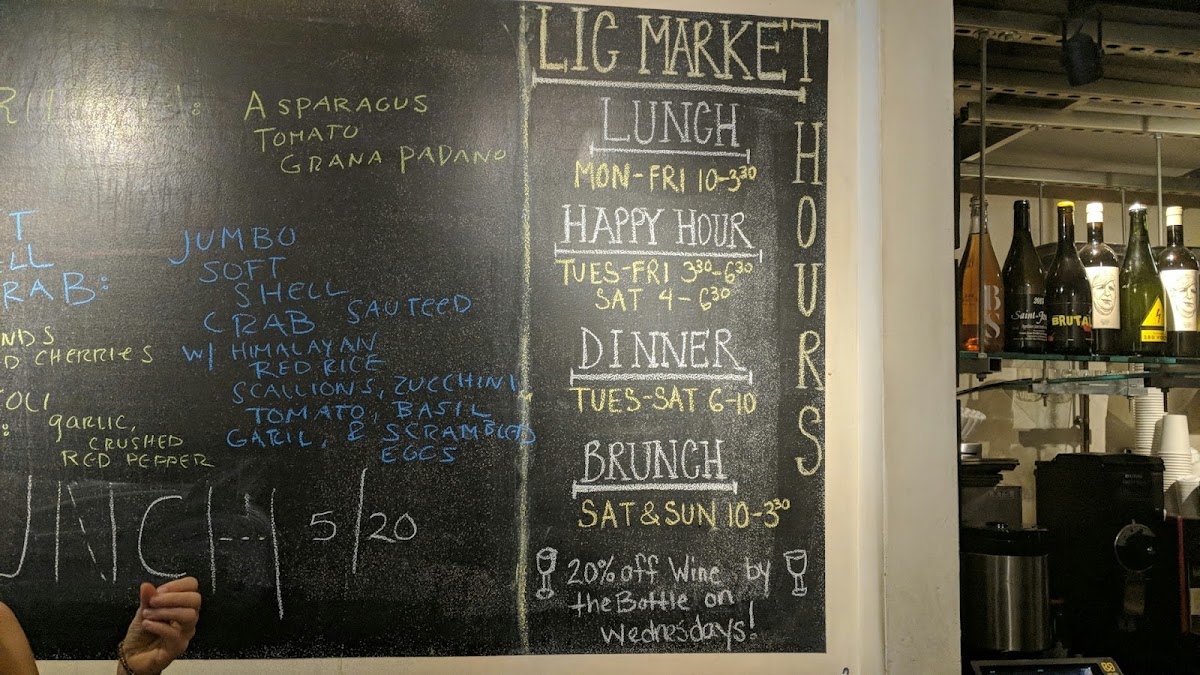 ASPARAGUS
TOMATO
GRANA PADANO
JUMBO
SOFT
SHELL
CRAB SAUTEED
W/ HIMALAYAN
RED RICE
SCALLIONS, ZUCCHINI,
TOMATO, BASIL
GARIL, & SCRAMBLED
EGGS
CHERRIES
garlic,
CRUSHED
RED PEPPER
5/20
LIC MARKET
HOURS
LUNCH
MON-FRI 10-3³⁰
HAPPY HOUR
TUES-FRI 3³⁰-6³⁰
SAT 4-6³⁰
DINNER
TUES-SAT 6-10
BRUNCH
SAT & SUN 10-3³⁰
20% off Wine by
the Bottle on
Wednesdays!
BS
Saint-
BRUTAL